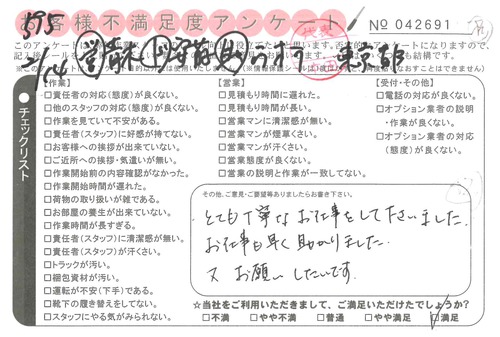 お客様不満足度アンケート
№ 042691
※このアンケートは
【作業】
□責任者の対応(態度)が良くない。
□他のスタッフの対応(態度)が良くない。
□作業を見ていて不安がある。
□責任者(スタッフ)に好感が持てない。
□お客様への挨拶が出来ていない。
□ご近所への挨拶・気遣いが無い。
□作業開始前の内容確認がなかった。
□作業開始時間が遅れた。
□荷物の取り扱いが雑である。
□お部屋の養生が出来ていない。
□作業時間が長すぎる。
□責任者(スタッフ)に清潔感が無い。
□責任者(スタッフ)が汗くさい。
□トラックが汚い。
□梱包資材が汚い。
□運転が不安(下手)である。
□靴下の履き替えをしてない。
□スタッフにやる気がみられない。
【営業】
□見積もり時間に遅れた。
□見積もり時間が長い。
□営業マンに清潔感が無い。
□営業マンが煙草くさい。
□営業マンが汗くさい。
□営業態度が良くない。
□営業の説明と作業が一致してない。
【受付・その他】
□電話の対応が良くない。
□オプション業者の説明
・作業が良くない。
□オプション業者の対応
(態度)が良くない。
●チェックリスト
その他、ご意見・ご要望等ありましたらお書き下さい。
とても丁寧なお仕事をして下さいました。
お仕事も早く助かりました。
又 お願いしたいです。
☆当社をご利用いただきまして、ご満足いただけたでしょうか?
□不満 □やや不満 □普通 □やや満足 □満足
東京都